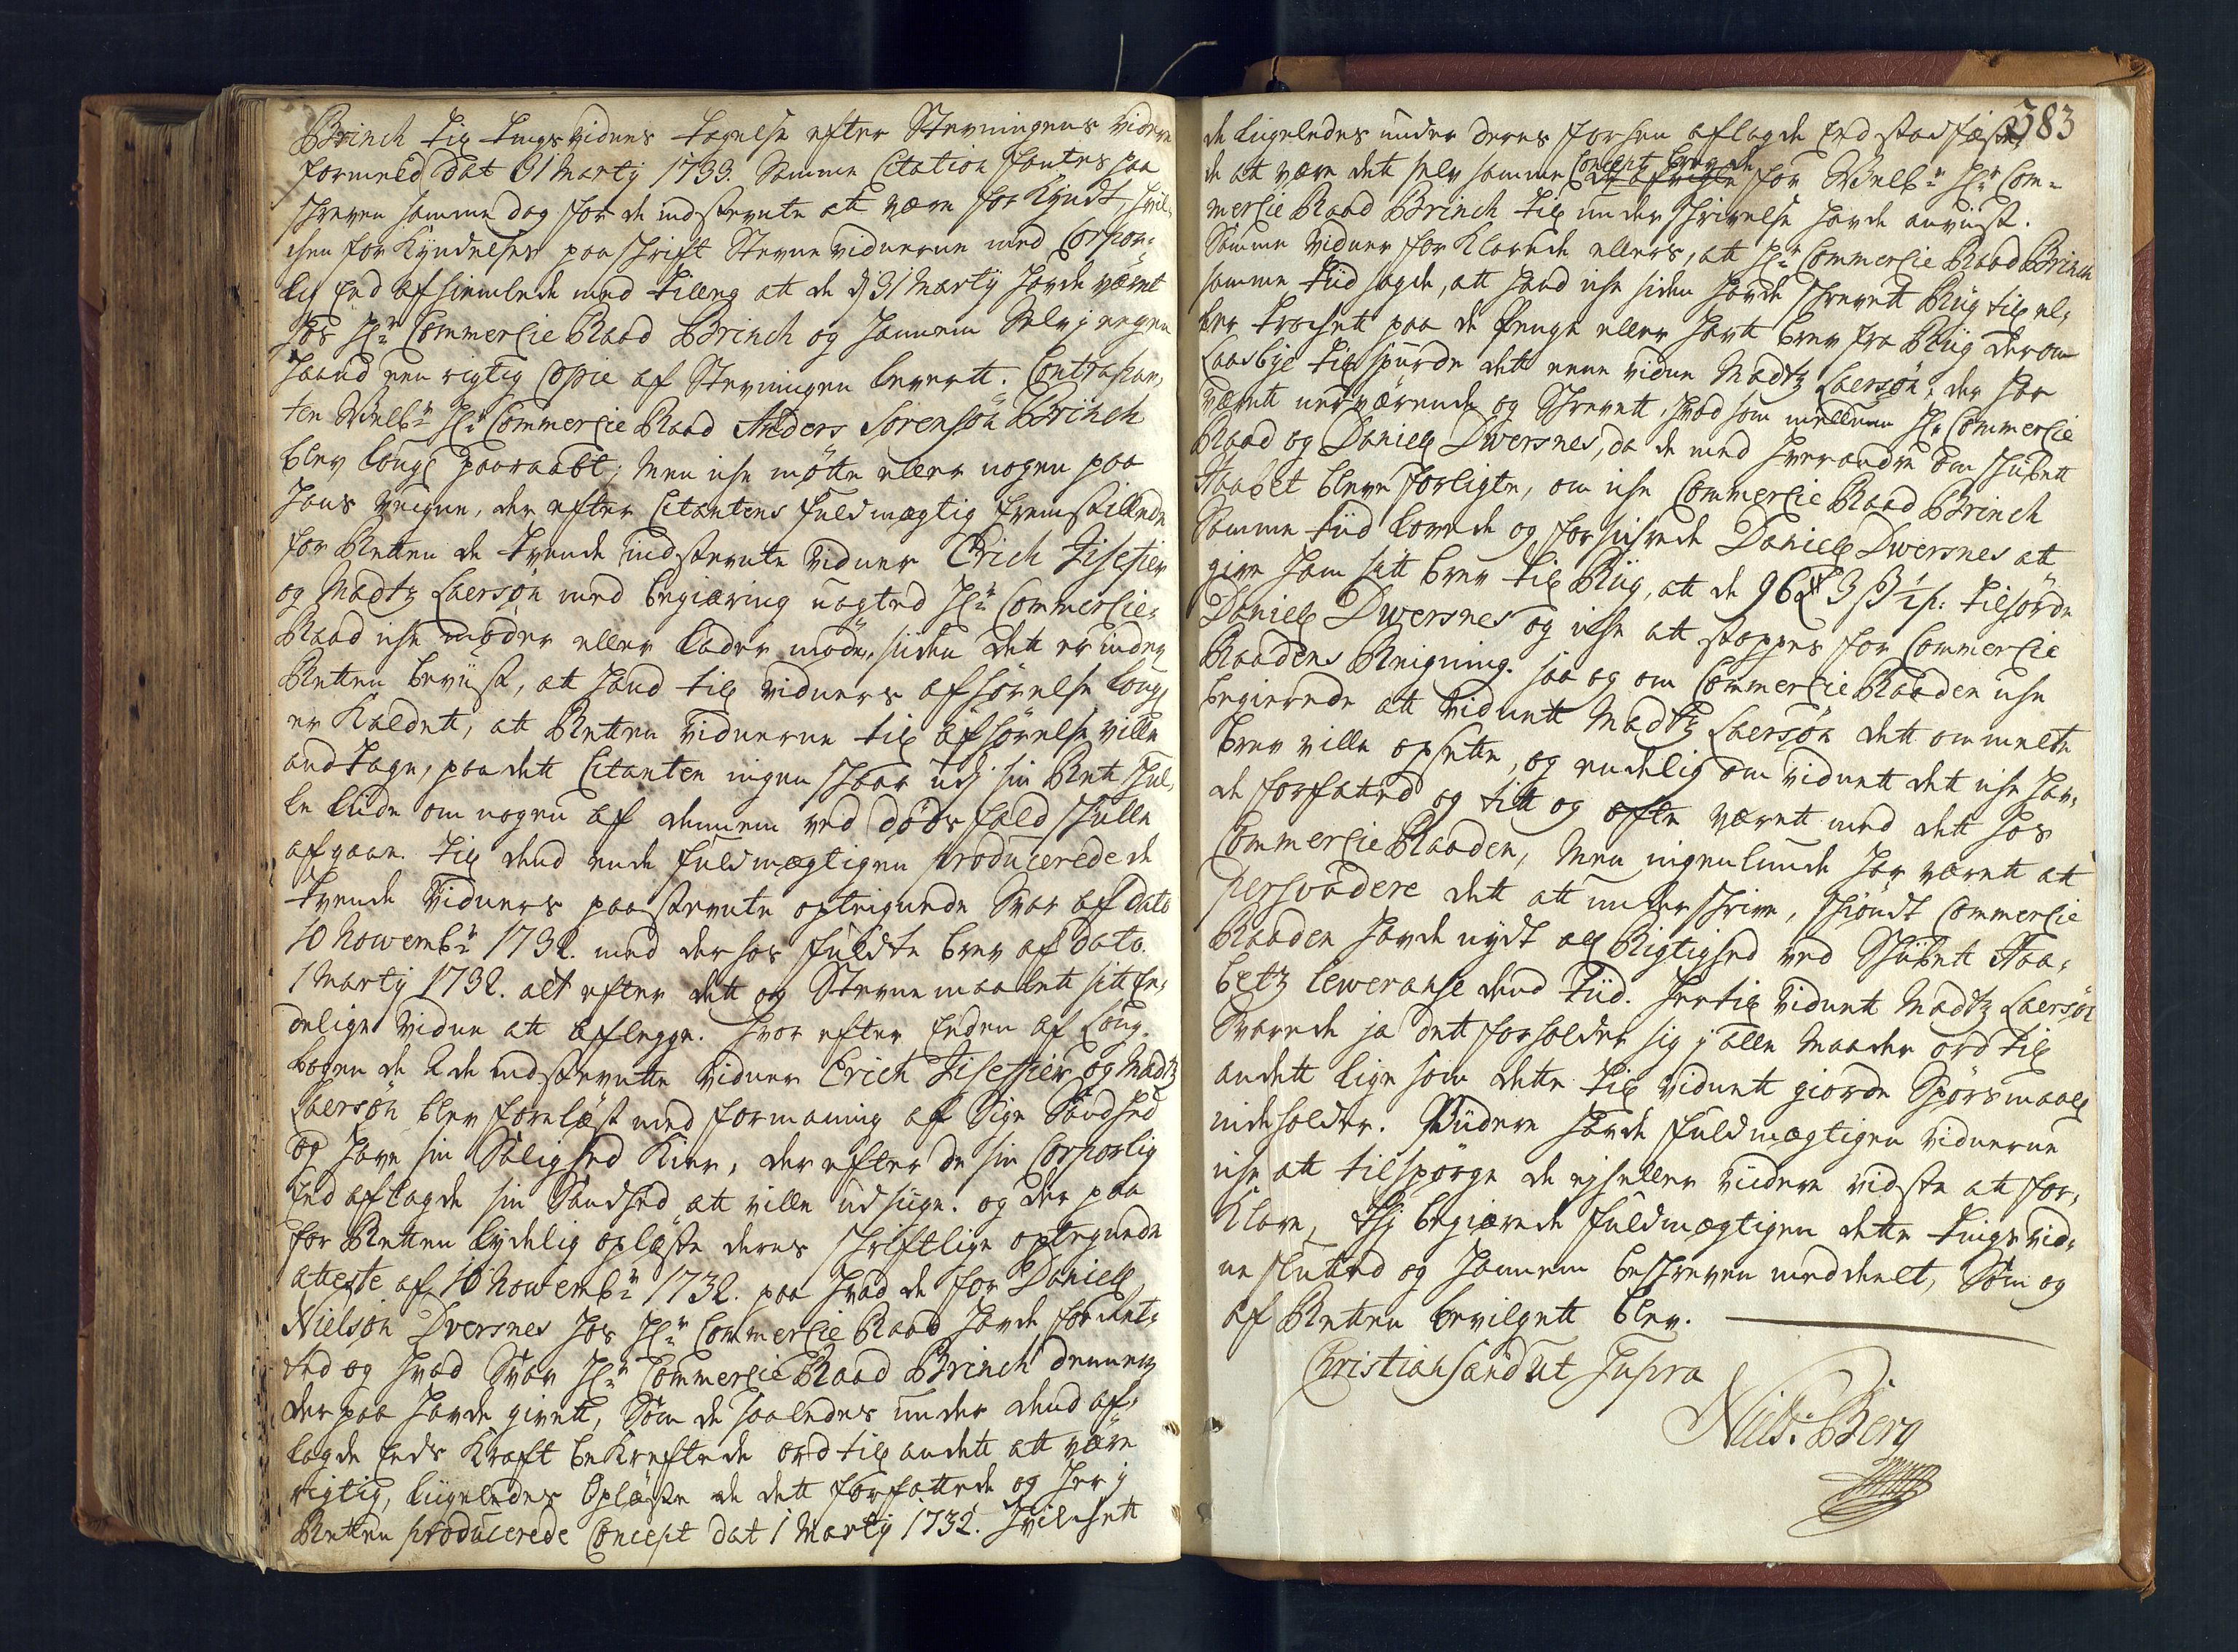 Brinch till tings vidnes tagelse efter Stevningens videre
formeld dat 31 Martij 1733. Samme Citation fantes paa
schreven samme dag for de indstevnte at være forkyndt, hvil-
chen forkyndelses paaschrift Stevnevidnerne med Corpor-
lig Eed afhiemlede med tilleg at de d 31 Martij hafde været
hos Hr Commercie Raad Brinch og hannem Selv i eegen
haand een rigtig Copie af Stevningen leverett. Contrapar-
ten Welbr Hr Commercie Raad Anders Sørensøn Brinch
blev lougl paaraabt; Men iche mötte eller nogen paa
hans veigne, der efter Citantens fuldmægtig fremstillede
for Retten de tvende indstevnte vidner Erich
og Madtz Laersøn med begiæring uagted Hr Commercie-
Raad iche møder eller lader møde, siiden dett er inden
Retten beviist, att hand till vidners afhörelse lougl
er Kaldett, att Retten vidnerne till afhörelse ville
andtage, paa dett Citanten ingen schaar udj sin Rett schul-
le liide om nogen af dennem ved döds fald schulle
afgaae. till dend ende fuldmægtigen producerede de
tvende vidners paastevnte optegnede Svar af dato
10 Nowembr 1732. med der hos fuldte brev af dato
1 Martij 1732. alt efter dett og Stevnemaalett sitt En-
delige vidne att aflegge. Hvor efter Eeden af Loug-
bogen de 2de indstevnte vidner Erich og Madtz
Laersøn blev forelæst med formaning at Sige Sandhed
og have sin Salighed Kier, der efter de sin Corporlig
Eed aflagde sin Sandhed att ville udsiige. og der paa
for Retten lydelig oplæste deres schriftlige optegnede
atteste af 10 Nowembr 1732. paa hvad de for Daniell
Nielsøn Dversnes hos Hr Commercie Raad hafde forrett-
ed og hvad Svar Hr Commercie Raad Brinch dennem
der paa hafde givett, Som de saaledes under dend af-
lagde Eeds Kraft bekreftede ord till andett att være
rigtig, liigeledes Oplæste de dett forfattede og her i
Retten producerede Concept dat 1 Martij 1732. hvilchett
383
de liigeledes under deres forhen aflagde Eed stadfæste-
de att være dett selv samme Concept brev de for Welbr Hr Com-
mercie Raad Brinch till underschrivelse hafde anviist.
Samme vidner forklarede ellers, att Hr Commercie Raad Brinch
samme tiid sagde, att hand iche siden hafde schrevett Riig till el-
ler trochett paa de Penge eller havt brev fra Riig derom
Laasbye tillspurde dett eene vidne Madtz Laersøn, der har
værett nerværende og Schrevett, hvad som mellem Hr Commercie
Raad og Daniell Dwersnes, da de med hverandre om schibett
Haabet bleve forligte, om iche Commercie Raad Brinch
Samme tiid lovede og forsichrede Daniell Dwersnes att
give ham sitt brev till Riig, att de 96 £ 3 ß ½ p: tilhörde
Daniell Dwersnes og iche att stoppes for Commercie
Raadens Reigning. saa og om Commercie Raaden iche
begierede att vidnett Madtz Laersøn dett ommelte
brev ville opsette, og endelig om vidnett det iche haf-
de forfatted og titt og ofte værett med dett hos
Commercie Raaden, Men ingenlunde har værett att
persvadere dett att underschrive, schiöndt Commercie
Raaden hafde nydt all Rigtighed ved Schibett Haa-
betz leweranse dend Tiid. Hertill vidnett Madtz Laersøn
Svarede ja dett forholder sig i alle Maader ord till
andett lige som dette till vidnett giorde Spørsmaall
indeholder. Viidere hafde fuldmægtigen vidnerne
iche att tilspørge de eyheller viidere vidste att for-
klare, Thj begierede fuldmægtigen dette tings vid-
ne slutted og hannem beschreven meddeelt, Som og
af Retten bevilgett blev.
Christiansand Ut Supra
Niels: Berg